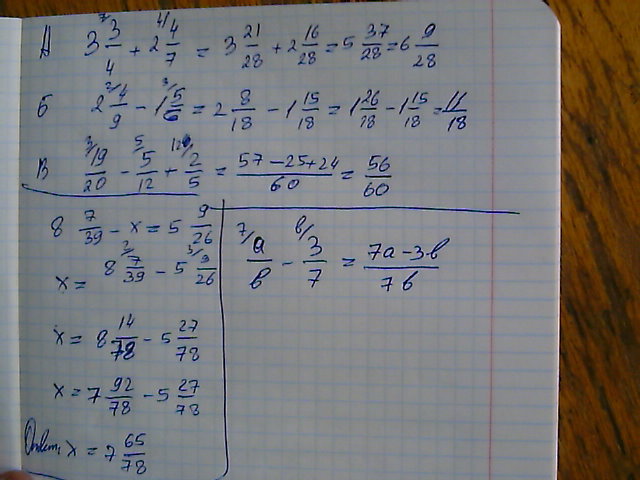 А 3 3/4 + 2 4/7 = 3 21/28 + 2 16/28 = 5 37/28 = 6 9/28
Б 2 4/9 - 1 5/6 = 2 8/18 - 1 15/18 = 1 26/18 - 1 15/18 = 11/18
В 19/20 - 5/12 + 2/5 = (57 - 25 + 24)/60 = 56/60
8 7/39 - x = 5 9/26
x = 8 7/39 - 5 9/26
x = 8 14/78 - 5 27/78
x = 7 92/78 - 5 27/78
Ответ: x = 7 65/78
a/b - 3/7 = (7a - 3b)/7b